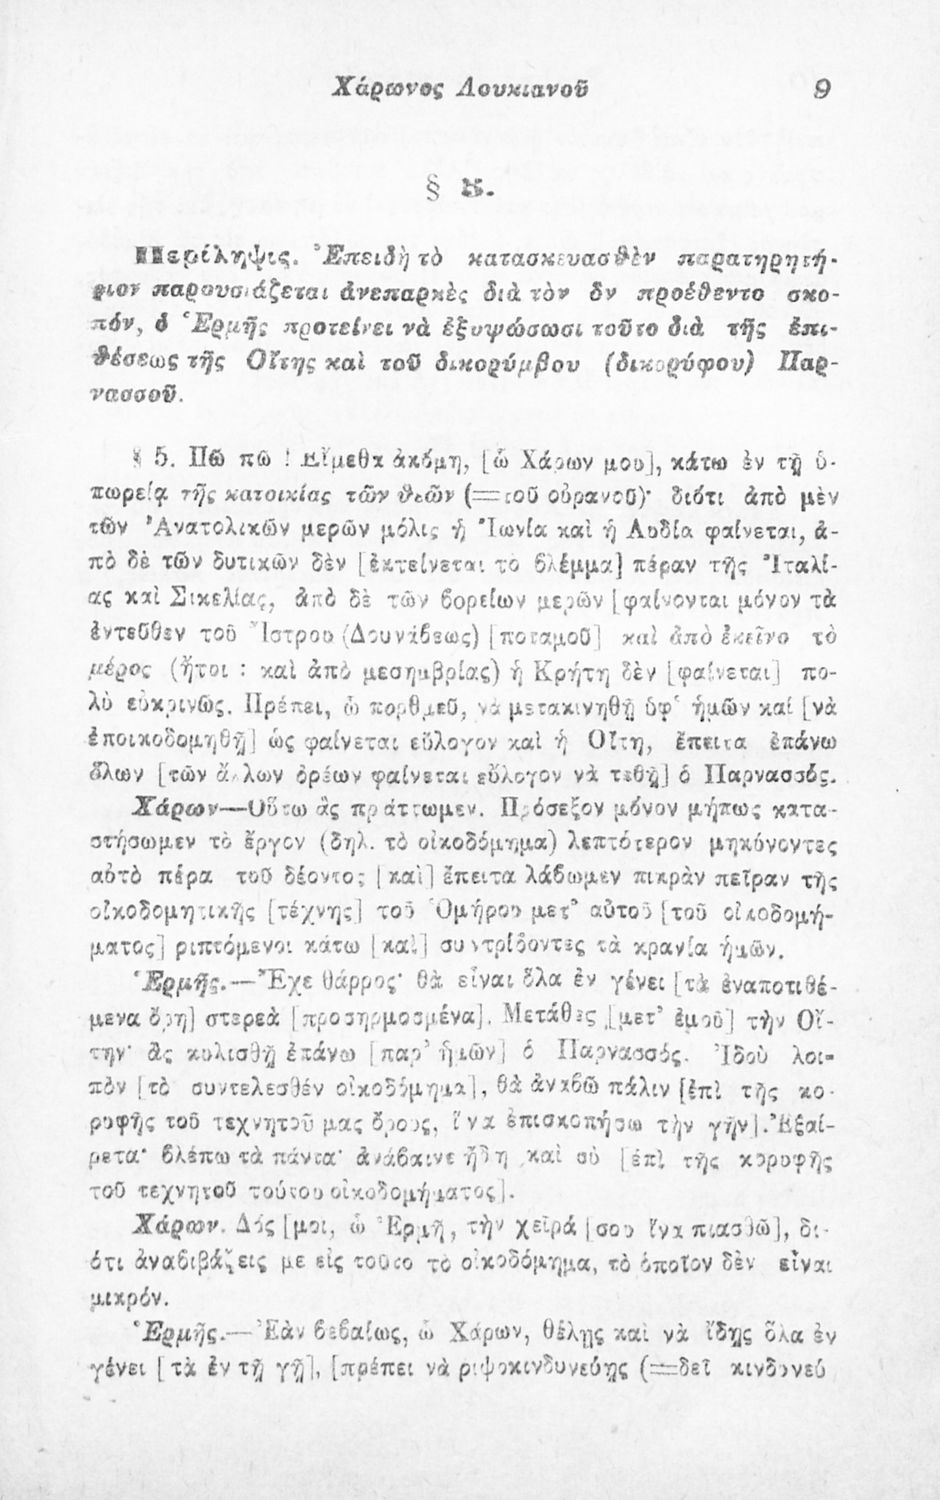 Χάρωνος Λουκιανοῦ 9
§ 5.
Περίληψις. Ἐπειδὴ τὸ κατασκευασθὲν παρατηρητή-
ριον παρουσιάζεται ἀνεπαρκὲς διὰ τὸν ὃν προέθεντο σκο-
πόν, ὁ Ἑρμῆς προτείνει νὰ ἐξυψώσωσι τοῦτο διὰ τῆς ἐπι-
θέσεως τῆς Οἴτης καὶ τοῦ δικορύμβου (δικορύφου) Παρ-
νασσοῦ.
§ 5. Πῶ πῶ ! Εἴμεθα ἀκόμη, [ὦ Χάρων μου], κάτω ἐν τῇ ὑ-
πωρείᾳ τῆς κατοικίας τῶν θεῶν (=τοῦ οὐρανοῦ)· διότι ἀπὸ μὲν
τῶν Ἀνατολικῶν μερῶν μόλις ἡ Ἰωνία καὶ ἡ Λυδία φαίνεται, ἀ-
πὸ δὲ τῶν δυτικῶν δὲν [ἐκτείνεται τὸ βλέμμα] πέραν τῆς Ἰταλί-
ας καὶ Σικελίας, ἀπὸ δὲ τῶν βορείων μερῶν [φαίνονται μόνον τὰ
ἐντεῦθεν τοῦ Ἴστρου (Δουνάβεως) [ποταμοῦ] καὶ ἀπὸ ἐκεῖνο τὸ
μέρος (ἤτοι : καὶ ἀπὸ μεσημβρίας) ἡ Κρήτη δὲν [φαίνεται] πο-
λὺ εὐκρινῶς. Πρέπει, ὦ πορθμεῦ, νὰ μετακινηθῇ ὑφ' ἡμῶν καί [νὰ
ἐποικοδομηθῇ] ὡς φαίνεται εὔλογον καὶ ἡ Οἴτη, ἔπειτα ἐπάνω
ὅλων [τῶν ἄλλων ὀρέων φαίνεται εὔλογον νὰ τεθῇ] ὁ Παρνασσός.
Χάρων—Οὕτω ἂς πράττωμεν. Πρόσεξον μόνον μήπως κατα-
στήσωμεν τὸ ἔργον (δηλ. τὸ οἰκοδόμημα) λεπτότερον μηκύνοντες
αὐτὸ πέρα τοῦ δέοντος [καὶ] ἔπειτα λάβωμεν πικρὰν πεῖραν τῆς
οἰκοδομητικῆς [τέχνης] τοῦ Ὁμήρου μετ' αὐτοῦ [τοῦ οἰκοδομή-
ματος] ριπτόμενοι κάτω [καὶ] συντρίβοντες τὰ κρανία ἡμῶν.
Ἑρμῆς.—Ἔχε θάρρος· θὰ εἶναι ὅλα ἐν γένει [τὰ ἐναποτιθέ-
μενα ὄρη] στερεὰ [προσηρμοσμένα]. Μετάθες [μετ' ἐμοῦ] τὴν Οἴ-
την· ἂς κυλισθῇ ἐπάνω [παρ' ἡμῶν] ὁ Παρνασσός. Ἰδοὺ λοι-
πὸν [τὸ συντελεσθέν οἰκοδόμημα], θὰ ἀναβῶ πάλιν [ἐπὶ τῆς κο-
ρυφῆς τοῦ τεχνητοῦ μας ὄρους, ἵνα ἐπισκοπήσω τὴν γῆν]. Ἐξαί-
ρετα· βλέπω τὰ πάντα· ἀνάβαινε ἤδη καὶ σὺ [ἐπὶ τῆς κορυφῆς
τοῦ τεχνητοῦ τούτου οἰκοδομήματος].
Χάρων. Δός [μοι, ὦ Ἑρμῆ, τὴν χεῖρά [σου ἵνα πιασθῶ], δι-
ότι ἀναβιβάζεις με εἰς τοῦτο τὸ οἰκοδόμημα, τὸ ὁποῖον δὲν εἶναι
μικρόν.
Ἑρμῆς.—Ἐὰν βεβαίως, ὦ Χάρων, θέλῃς καὶ νὰ ἴδῃς ὅλα ἐν
γένει [τὰ ἐν τῇ γῇ], [πρέπει νὰ ριψοκινδυνεύῃς (=δεῖ κινδυνεύ